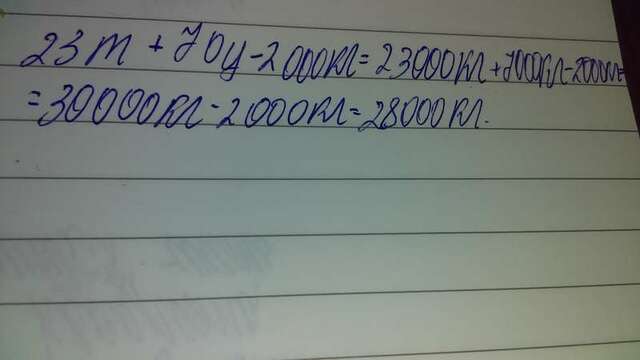 23т + 70ц - 2000кг = 23000кг + 7000кг - 2000кг =
= 30000кг - 2000кг = 28000кг.